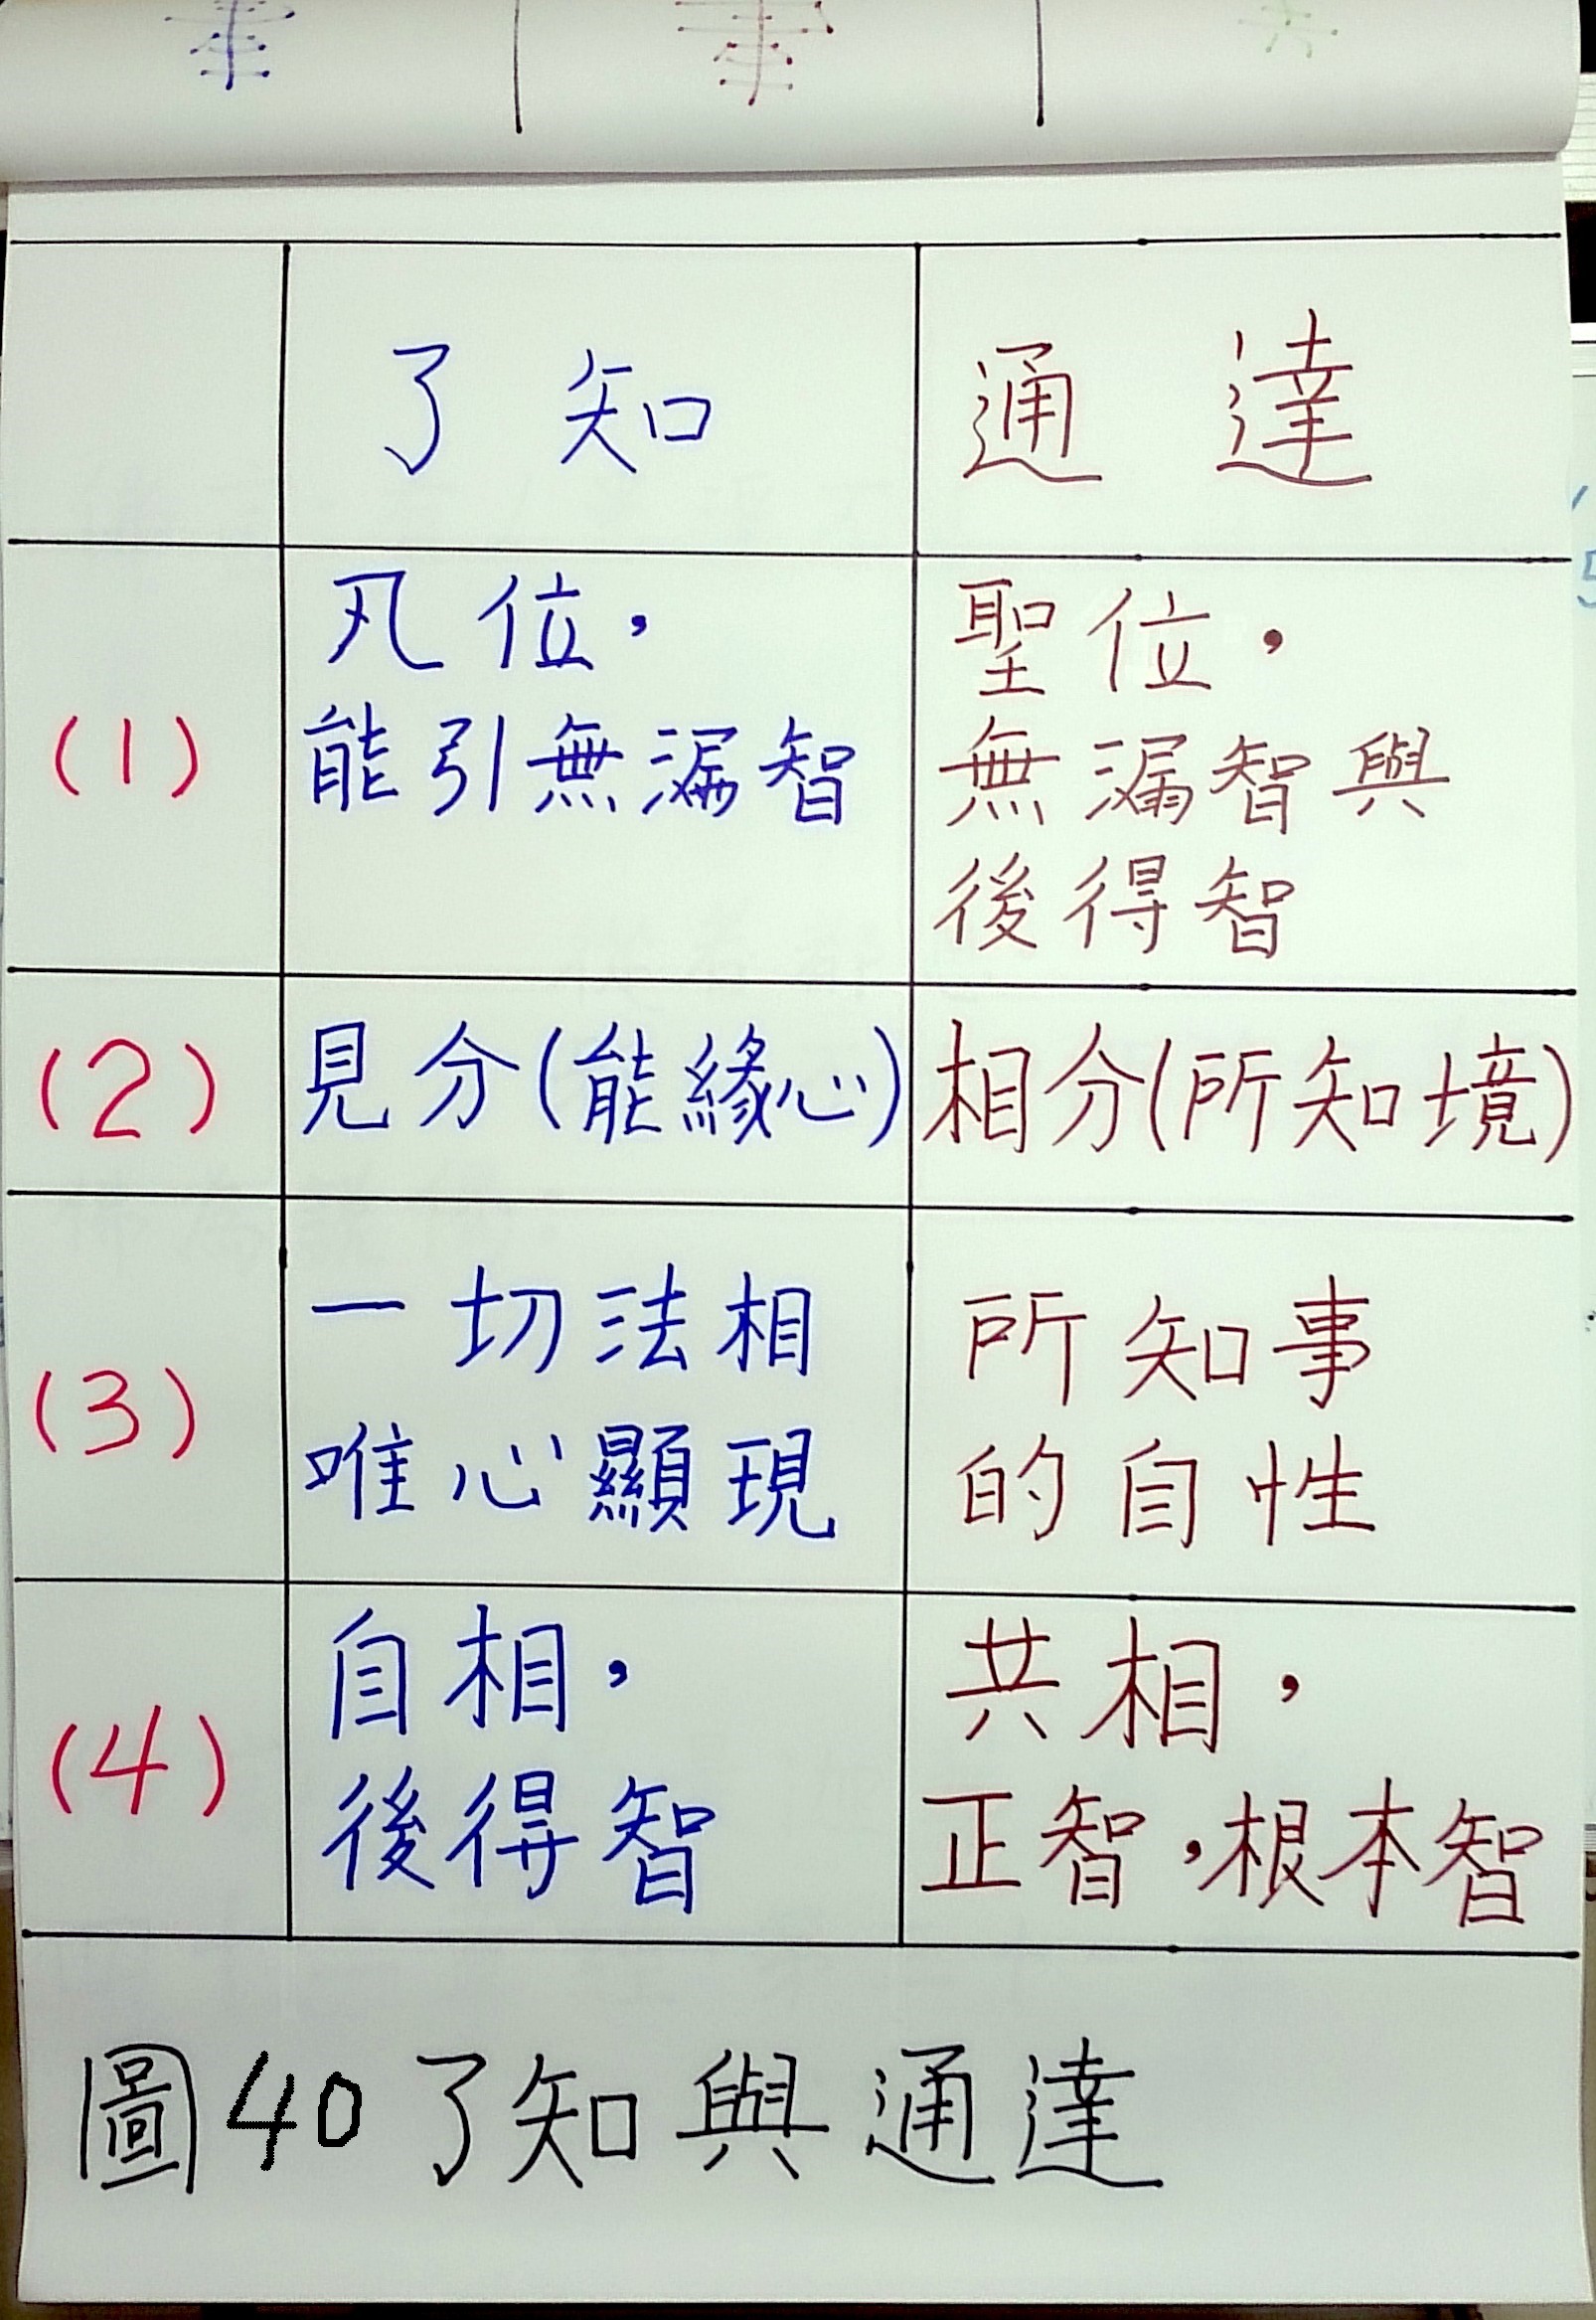 了知 通達
(1) 凡位，ᅠ聖位，
能引無漏智 無漏智與
後得智
(2) 見分(能緣心) 相分(所知境)
一切法相 所知事
(3)
唯心顯現 的自性
自相， 共相，
(4)
後得智 正智，根本智
圖40 了知與通達